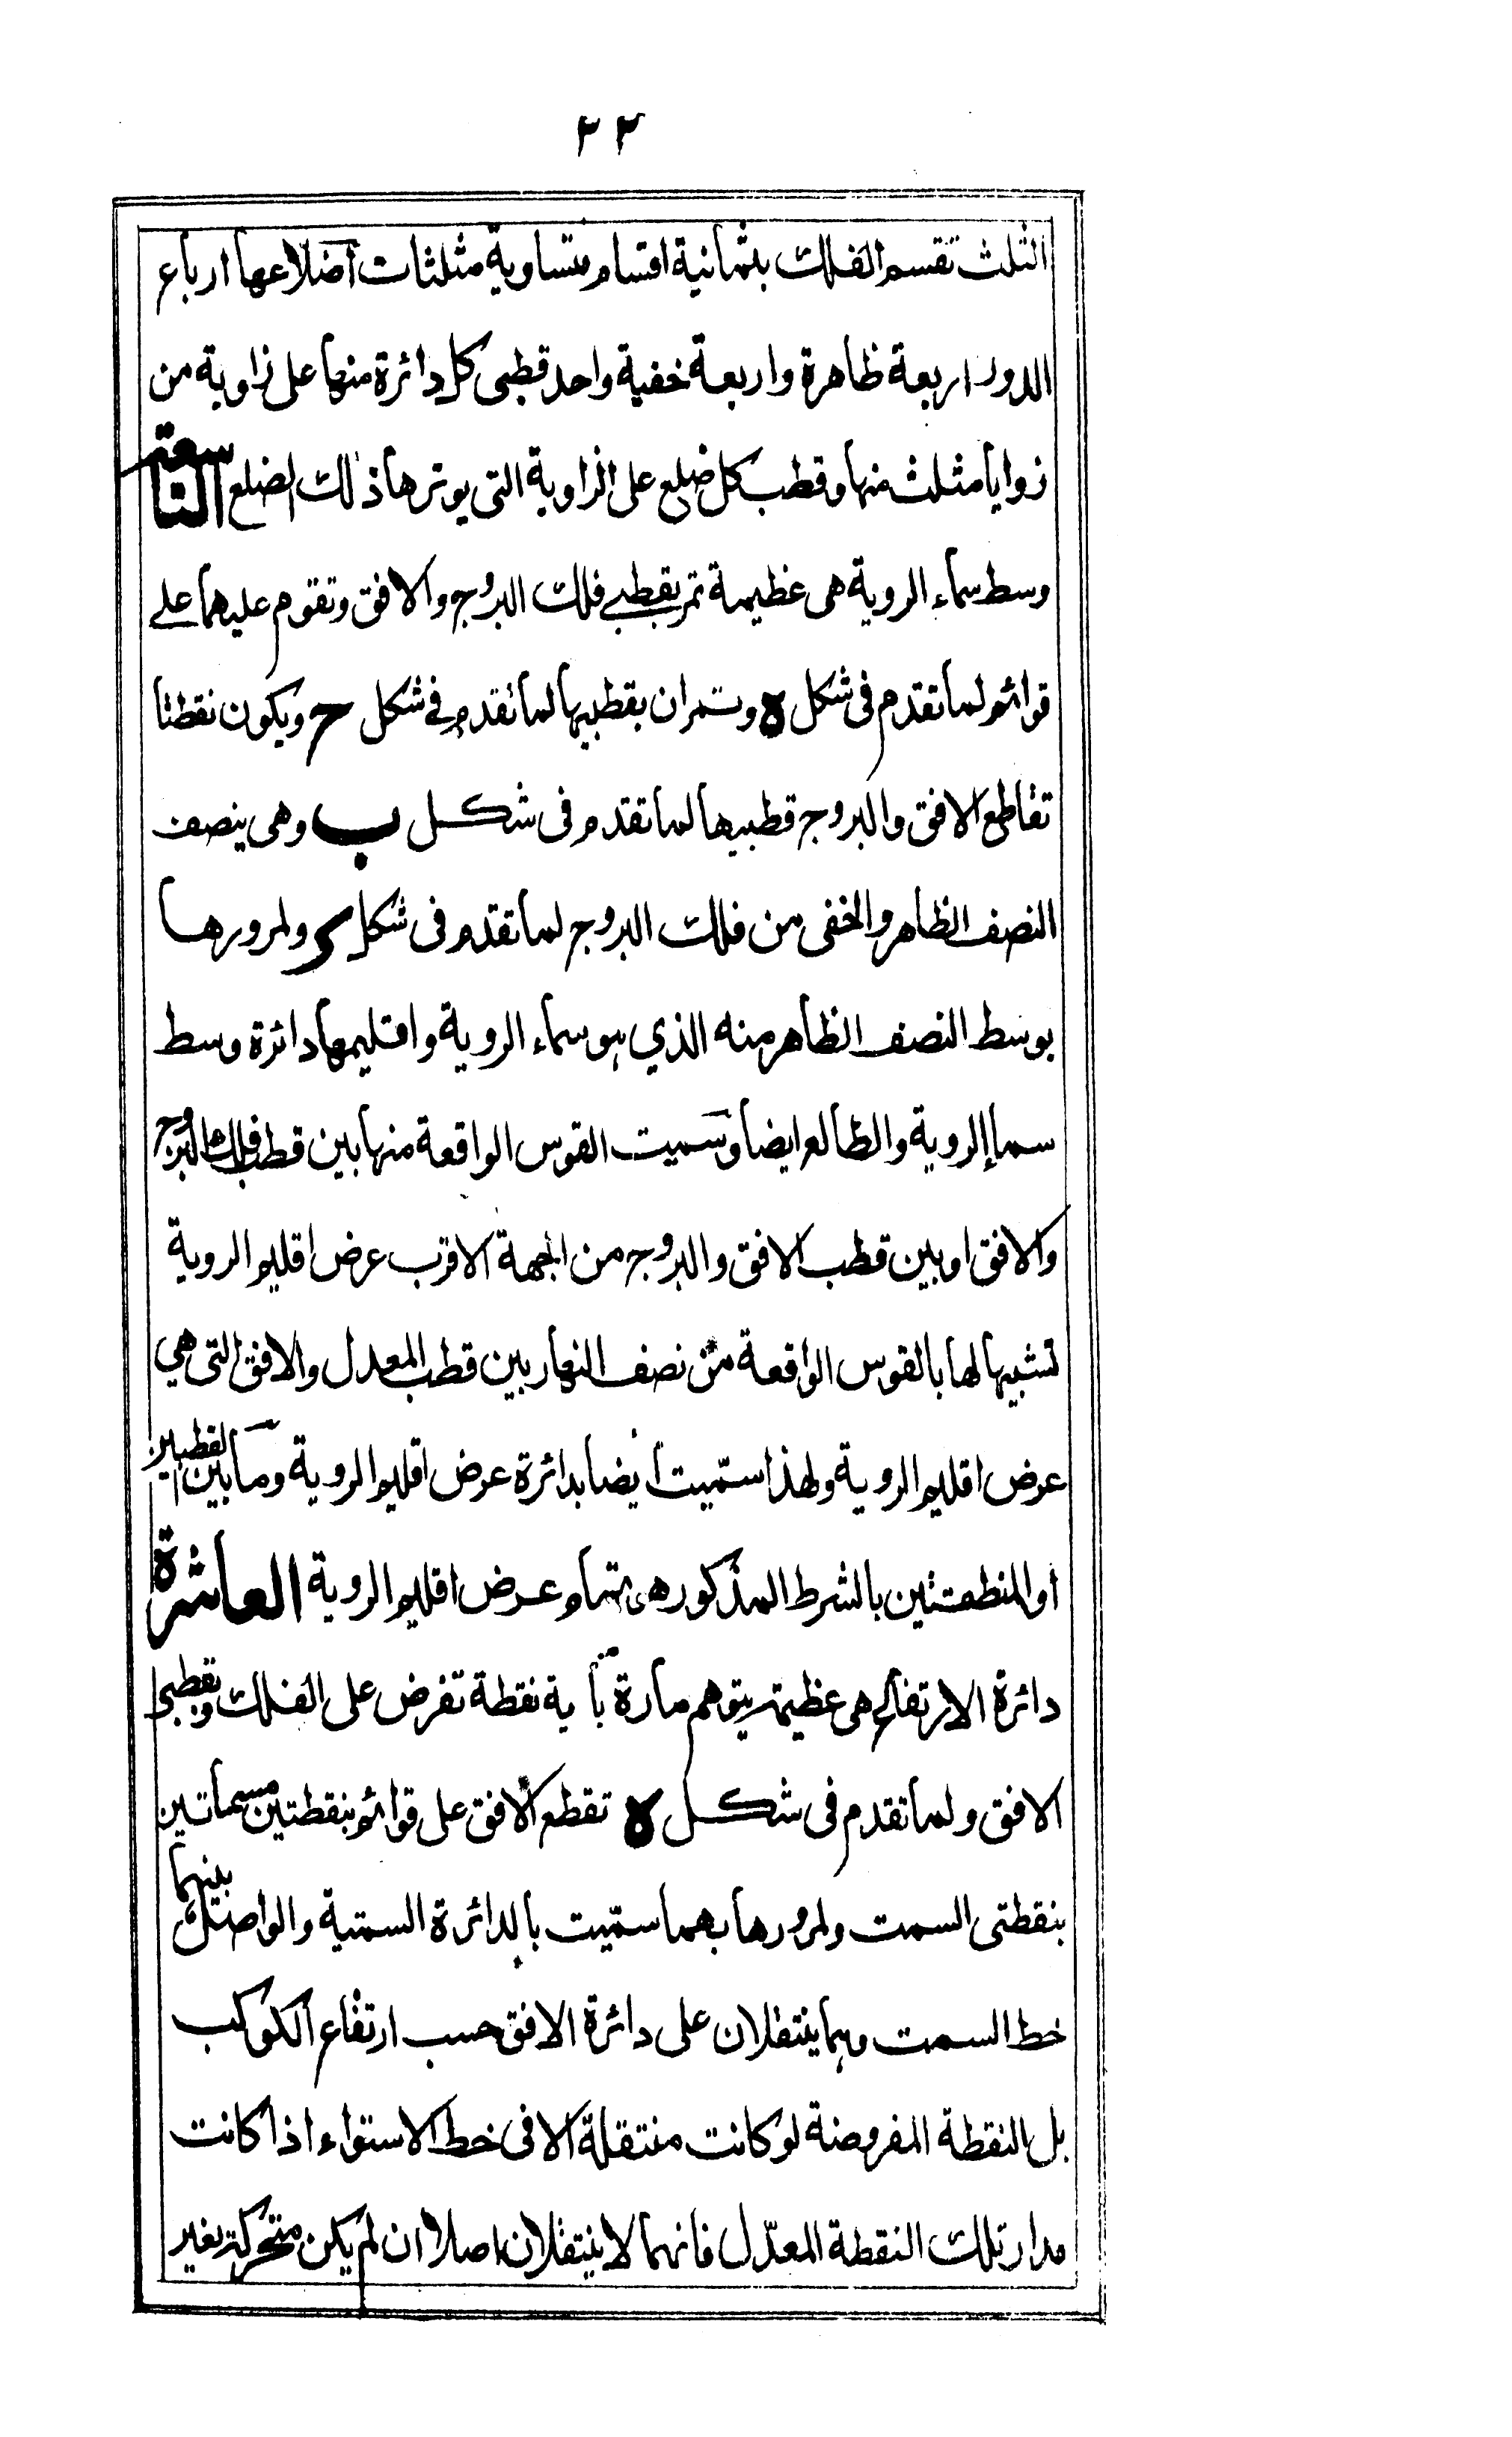 ٣٢
الثلث تقسم الفلك بثمانية اقسام متساوية مثلثات اضلاعها ارباع
الدور اربعة ظاهرة واربعة خفية واحد قطبى كل دائرة منها على زاوية من
زوايا مثلث منها وقطب كل ضلع على الزاوية التى يوترها ذلك الضلع التاسعة
وسط سماء الروية هى عظيمة تمر بقطبے فلك البروج والافق وتقوم عليهما علے
قوائم لما تقدم فى شكل ه وتمران بقطبيها لما تقدم فے شكل ح ويكون نقطتا
تقاطع الافق والبروج قطبيها لما تقدم فى شكل ب وهى ينصف
النصف الظاهر والخفى من فلك البروج لما تقدم فى شكل ى ولمرورها
بوسط النصف الظاهر منه الذي هو سماء الروية واقليمها دائرة وسط
سما الروية والطالع ايضا وسميت القوس الواقعة منها بين قطب فلك البروج
والافق او بين قطب الافق والبروج من الجهة الاقرب عرض اقليم الروية
تشبيها لها بالقوس الواقعة من نصف النهار بين قطب المعدل والافق التى هي
عرض اقليم الروية ولهذا سمّيت ايضا بدائرة عرض اقليم الروية وما بين القطبين
او المنطقتين بالشرط المذكور هى تمام عرض اقليم الروية العاشرة
دائرة الارتفاع هى عظيمة يتوهم مارة بأية نقطة تفرض على الفلك وبقطبى
الافق ولما تقدم فى شكل ه تقطع الافق على قوائم بنقطتين مسماتين
بنقطتى السمت ولمرورها بهما سمّيت بالدائرة السمتية والواصل بينهما
خط السمت وهما ينتقلان على دائرة الافق حسب ارتفاع الكوكب
بل النقطة المفروضة لو كانت منتقلة الا فى خط الاستواء اذا كانت
مدار تلك النقطة المعدّل فانهما لا ينتقلان اصلا ان لم يكن متحركة بغير